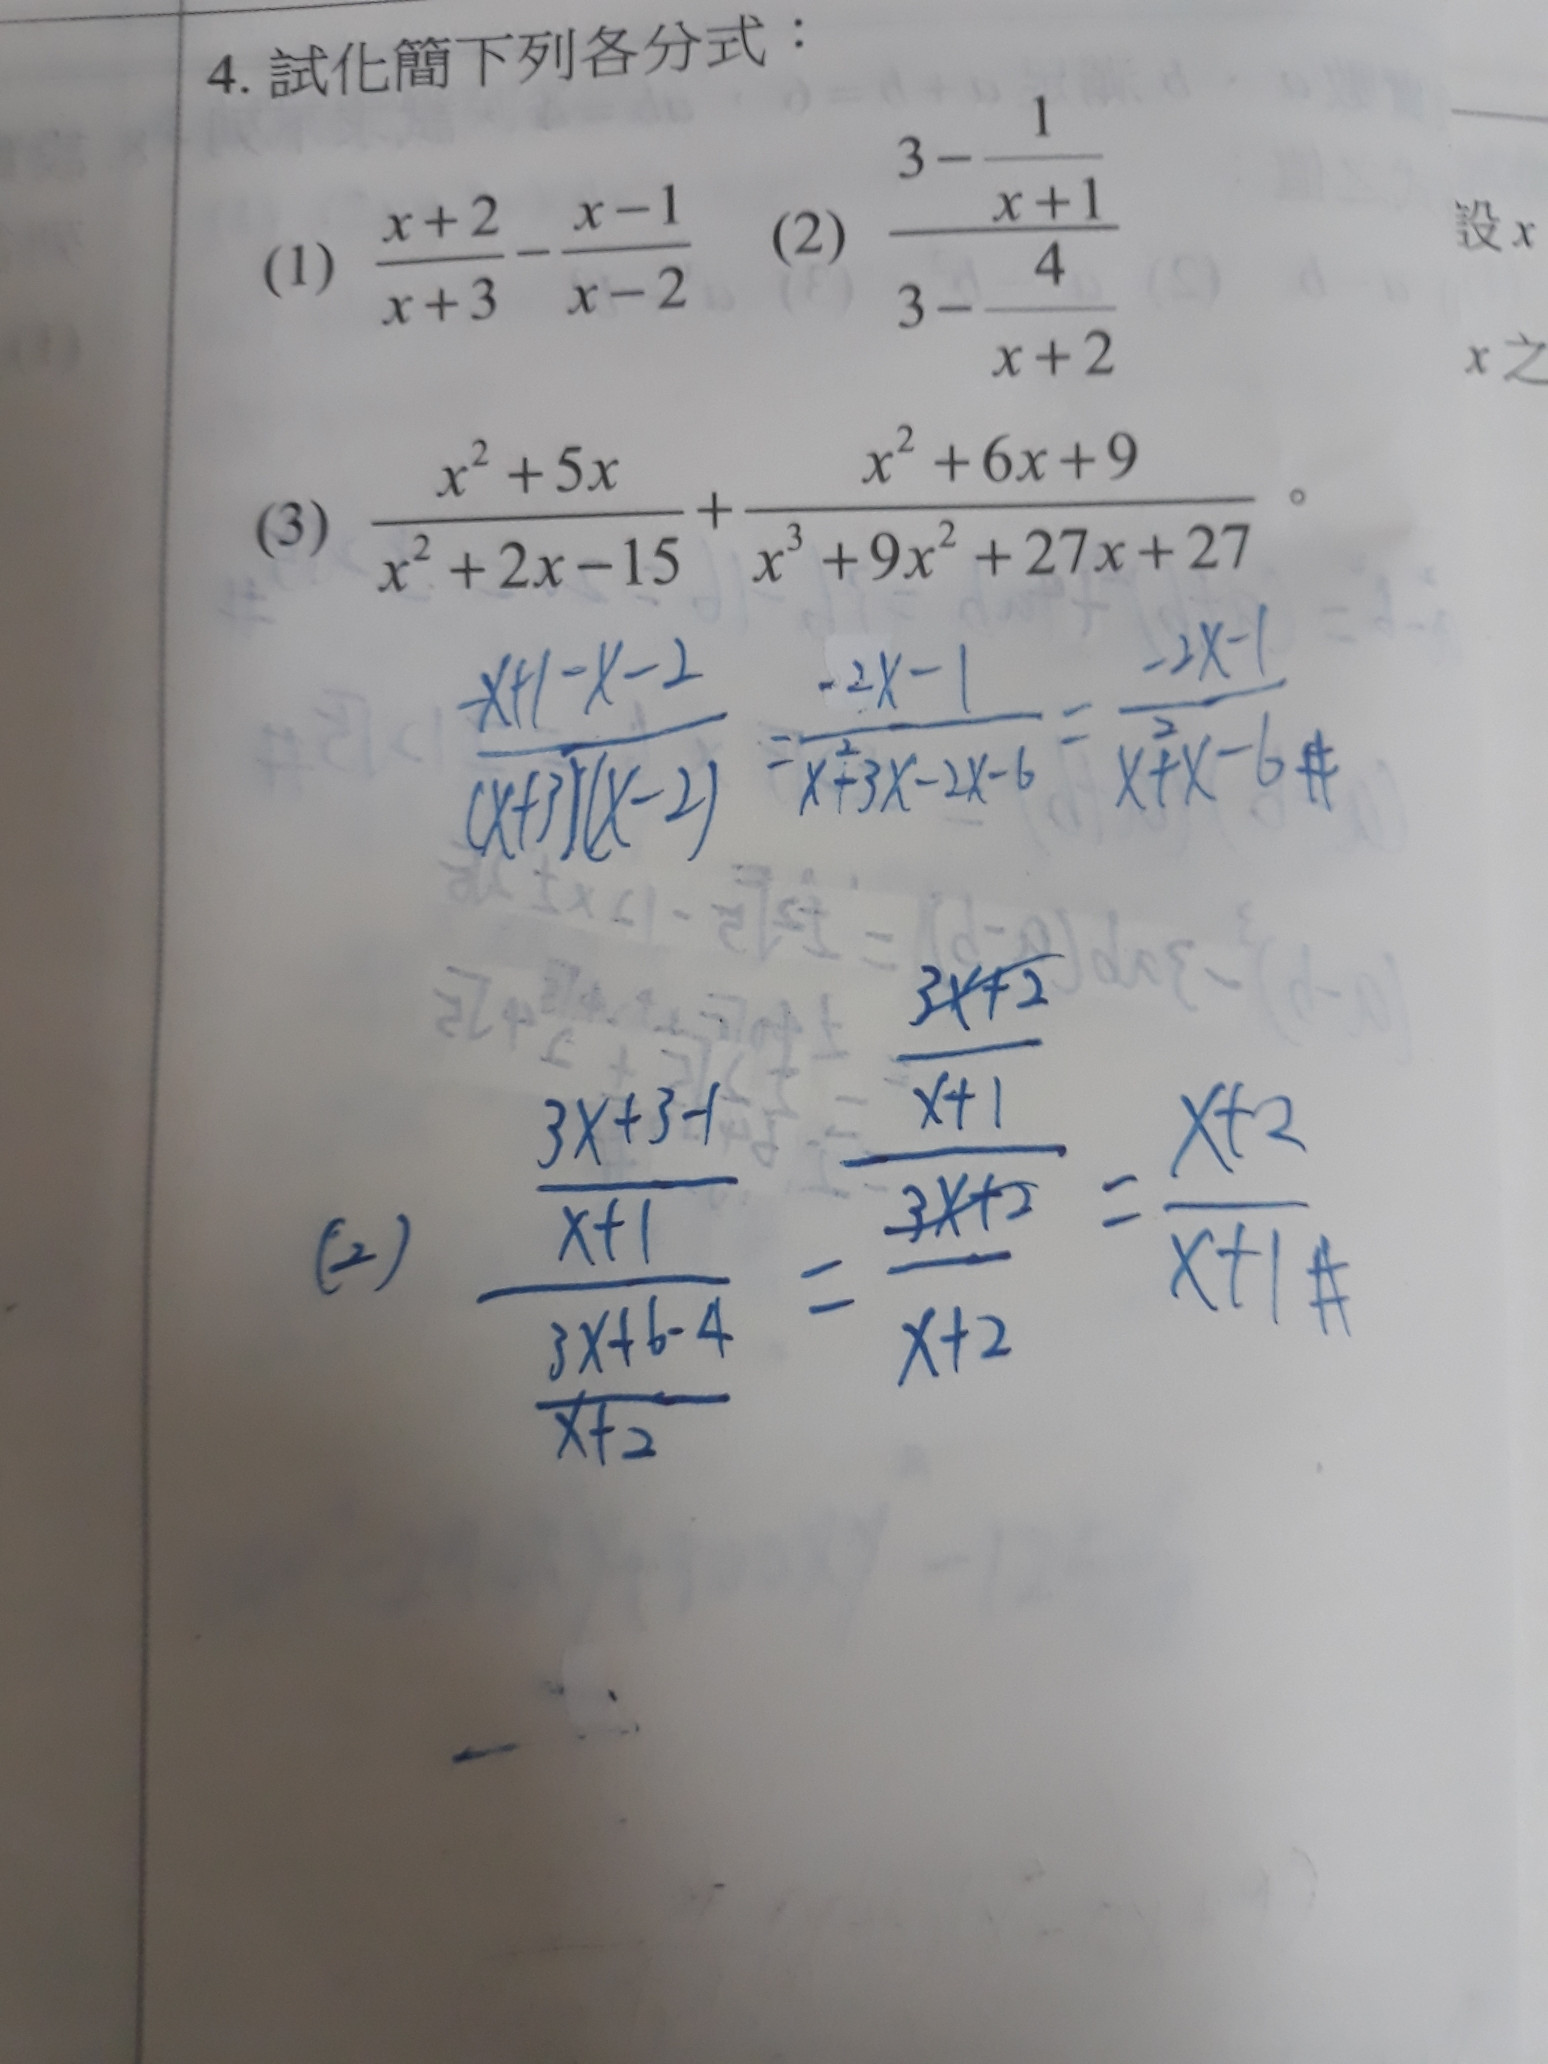 4. 試化簡下列各分式：
(1) \frac{x+2}{x+3} - \frac{x-1}{x-2} (2) \frac{3-\frac{1}{x+1}}{3-\frac{4}{x+2}}
設x
x之
(3) \frac{x^2+5x}{x^2+2x-15} + \frac{x^2+6x+9}{x^3+9x^2+27x+27} 。
\frac{-x+1-x-2}{(x+3)(x-2)} = \frac{-2x-1}{x^2+3x-2x-6} = \frac{-2x-1}{x^2+x-6} #
(2) \frac{\frac{3x+3-1}{x+1}}{\frac{3x+6-4}{x+2}} = \frac{\frac{3x+2}{x+1}}{\frac{3x+2}{x+2}} = \frac{x+2}{x+1} #